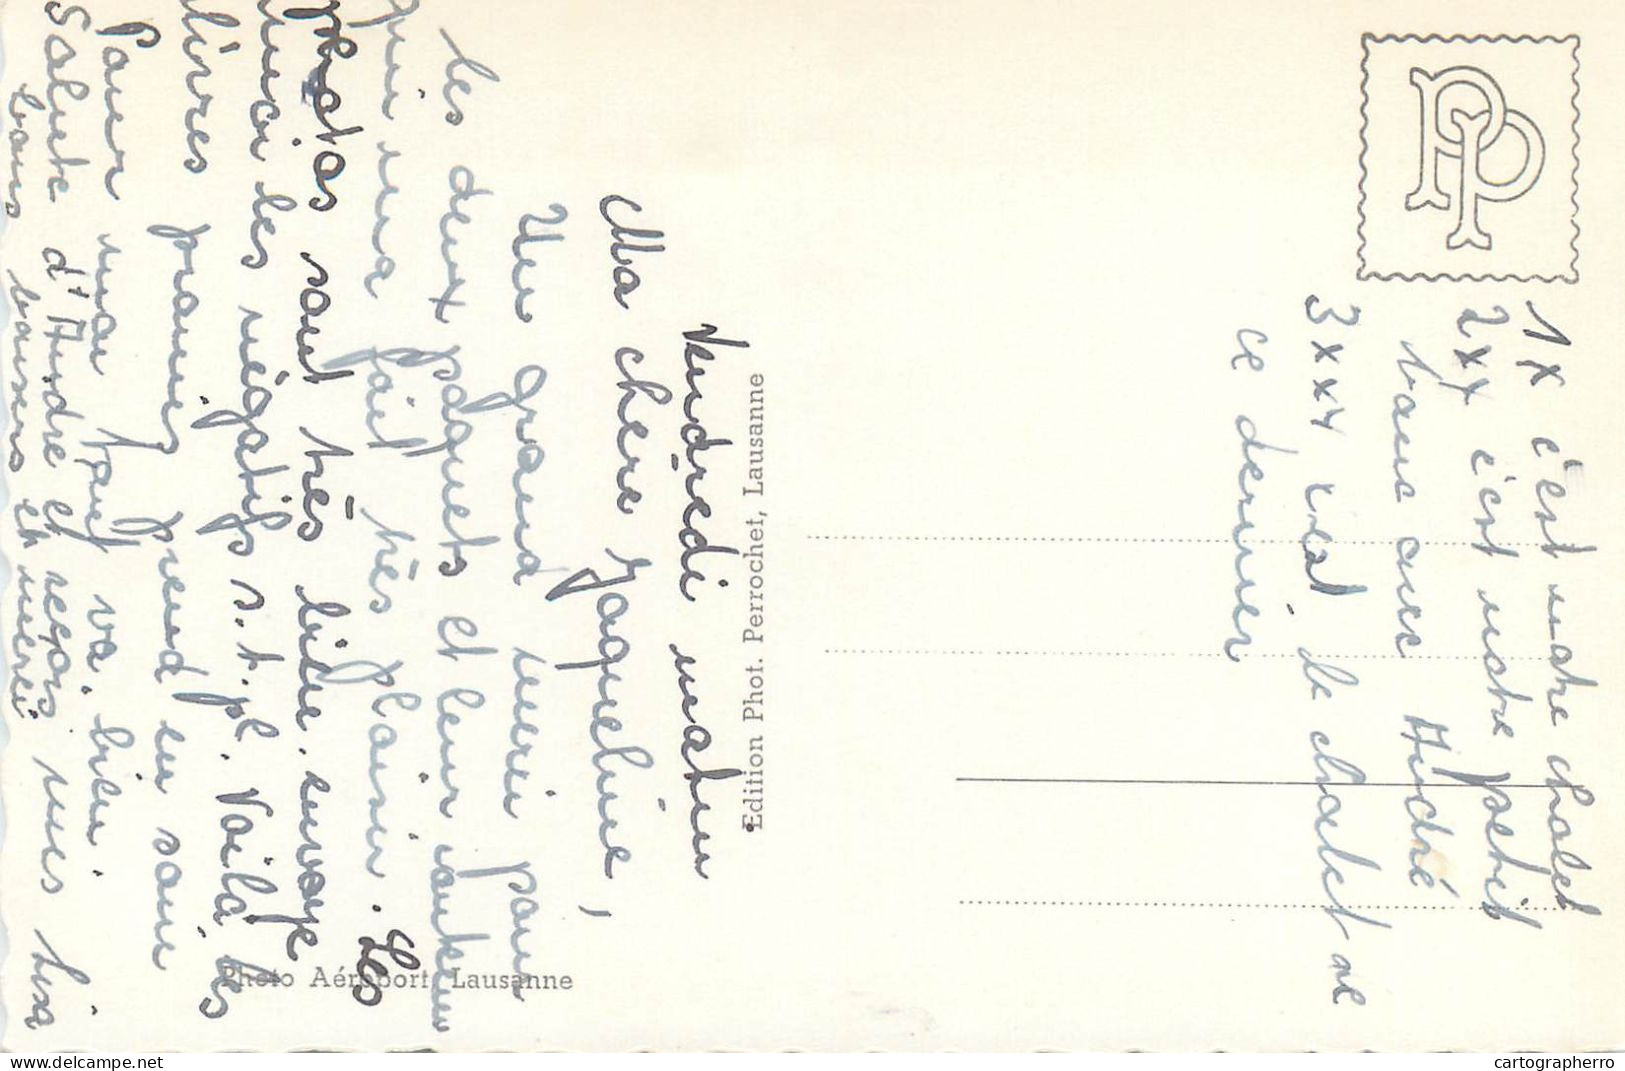 Vendredi matin
Ma chère Jaqueline,
Un grand merci pour
les deux paquets et leur contenu
qui m'a fait très plaisir. Les
photos sont très bien. envoye
moi les négatifs s.t.pl. Voilà les
livres prends en soin
Pour moi tout va bien.
Salute d'André et reçois mes
bons baisers et merci
1x c'est notre chalet
2xx c'est notre petit
banc avec André
3xxx c'est le chalet de
ce dernier
Edition Phot. Perrochet, Lausanne
Photo Aéroport Lausanne
PP
cartographerro